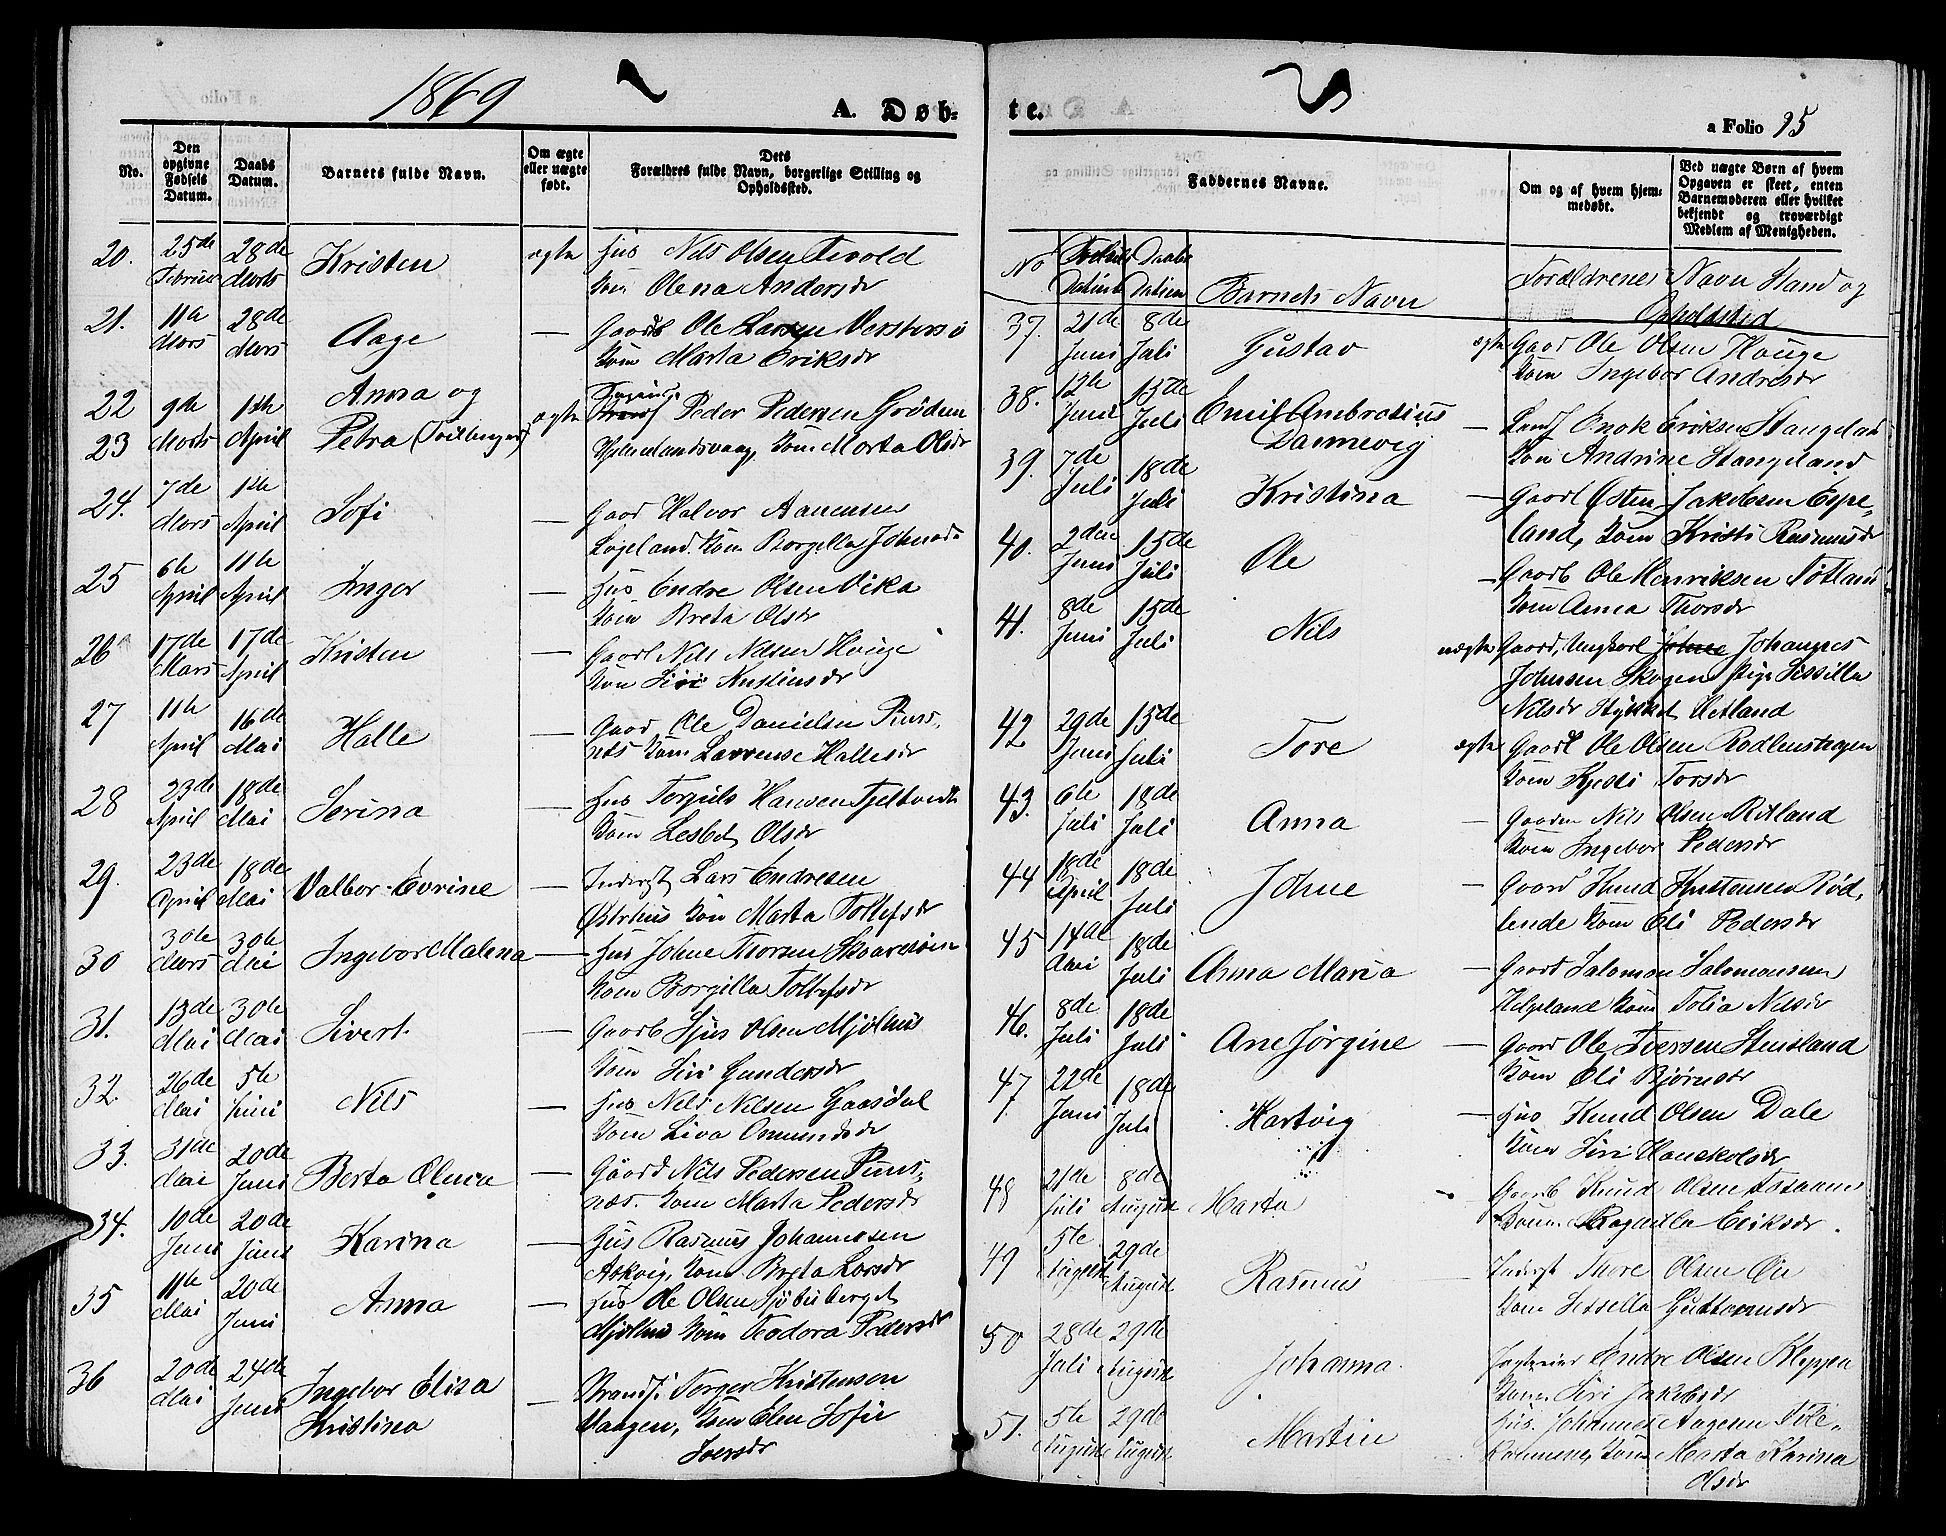 1869
A. Døb-
No.
Den opgivne Fødsels Datum.
Daabs Datum.
Barnets fulde Navn.
Om ægte eller uægte født.
Dets Forældres fulde Navn, borgerlige Stilling og Opholdssted.
20. 25de Februar 28de Marts Kristen ægte Hus Nils Olsen Tvold
Kone Olena Andersdr
21. 11te Mars 28de Mars Aage — Gaardb Ole Larsen Vestersø
Kone Marta Eriksdr
22 9de Marts 1ste April Anna og
23 Petra (Tvillinger) ægte Peder Pedersen Grødem
Hjelmelandsvaag, Kone Marta Olsdr
24. 7de Mars 1ste April Sofi — Gaard Halvor Aanensen
Kone Borgilla Johnsdr
25 6te April 11te April Inger — Hus Endre Olsen Vika
Kone Breta Olsdr
26 17de Mars 17de April Kristen — Gaard Nils Nilsen Hauge
Kone Siri
27 11te April 16de Mai Halle — Gaard Ole Danielsen Puns-
næs Kone Lavrense Hallesdr
28 23de April 18de Mai Serina — Hus Torgils Hansen
Kone Lesbet Olsdr
29. 23de April 18de Mai Valbor Evrine — Inderst Lars Endresen
Østrhus Kone Marta Tollefsdr
30 30te Mars 30te Mai Ingebor Malena — Hus Johne Thorsen
Kone Borgilla Tollefsdr
31. 13de Mai 30te Mai Sivert. — Gaardb Sjur Olsen Mjølhus
Kone Siri Gundersdr
32. 26de Mai 5te Juni Nils — Hus Nils Nilsen Gaasdal
Kone Liva Osmundsdr
33. 31te Mai 20de Juni Berta Olina — Gaard Nils Pedersen Puns-
næs. Kone Marta Pedersdr
34. 10de Juni 20de Juni Karina — Hus Rasmus Johannessen
Askvig, Kone Breta Larsdr
35 11te Mai 20de Juni Anna — Hus Ole Olsen
Mjølhus Kone Teodora Pedersdr
36 20de Mai 24de Juni Ingebor Elisa — Strands. Torger Kristensen
Kristina Vaagen, Kone Elen Sofie
Iversdr
te.
a Folio 95
Faddernes Navne.
Om og af hvem hjemmedøbt.
Ved uægte Børn af hvem Opgaven er skeet, enten Barnemoderen eller hvilket bekjendt og troværdigt Medlem af Menigheden.
No Fødsels Datum Daabs Datum Barnets Navn Forældrenes Navn Stand og
Opholdsted
37. 21de Juni 8de Juli Gustav ægte Gaard Ole Olsen Hauge
Kone Ingebor Andresdr
38. 12te Juni 15de Juli Emil Ambrosius
Dannevig — Enok Eriksen Stangeland
Kone Andrine Stangeland
39. 7de Juli 18de Juli Kristina — Gaard Østen Jakobsen Espe-
land, Kone Kristi Rasmusdr
40. 2den Juni 15de Juli Ole — Gaardb Ole Henriksen Nøtland
Kone Anna Thorsdr
41. 8de Juni 15de Juli Nils uægte Gaard, Ungkarl Johne Johannes
Johnsen Skogen Pige Sissilla
Nilsdr Ritland
42 29de Juni 15de Juli Tore ægte Gaard Ole Olsen
Kone Torsdr
43. 6te Juli 18de Juli Anna — Gaardm Nils Olsen Ritland
Kone Ingebor Pedersdr
44 18de April 18de Juli Johne — Gaard Knud Kristensen Rød-
lende Kone Eli Pedersdr
45 14de Mai 18de Juli Anna Maria — Gaard Salomon Salomonsen
Helgeland Kone Tolia Nilsdr
46. 8de Juli 18de Juli Ane Jørgine — Gaard Ole Iversen Steinsland
Kone Eli Bjørnsdr
47 22de Juni 18de Juli Hartvig — Hus Knud Olsen Dale
Kone Siri
48 21de Juli 8de August Marta — Gaardb Knud Olsen
Kone Ragnilla Eriksdr.
49 5te August 29de August Rasmus — Inderst Thore Olsen Øie
Kone Sessella Guttormsdr
50 28de Juli 29de August Johanna. Endre Olsen Kleppa
Kone Siri Jakobsdr
51. 5te August 29de August Martin Hus. Johannes Aagesen
Kone Marta Karina
Olsdr